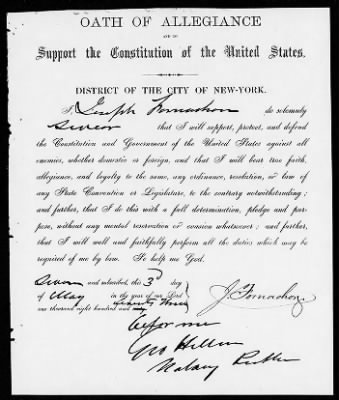 OATH OF ALLEGIANCE
AND TO
Support the Constitution of the United States.
DISTRICT OF THE CITY OF NEW-YORK.
I, Joseph Fornachon do solemnly
Swear that I will support, protect, and defend
the Constitution and Government of the United States against all
enemies, whether domestic or foreign, and that I will bear true faith,
allegiance, and loyalty to the same, any ordinance, resolution, or law of
any State Convention or Legislature, to the contrary notwithstanding;
and further, that I do this with a full determination, pledge and pur-
pose, without any mental reservation or evasion whatsoever; and further,
that I will well and faithfully perform all the duties which may be
required of me by law. So help me God.
Sworn and subscribed, this 3d day
of May in the year of our Lord
one thousand eight hundred and seventy three
J. Fornachon
before me
Geo
Notary Public